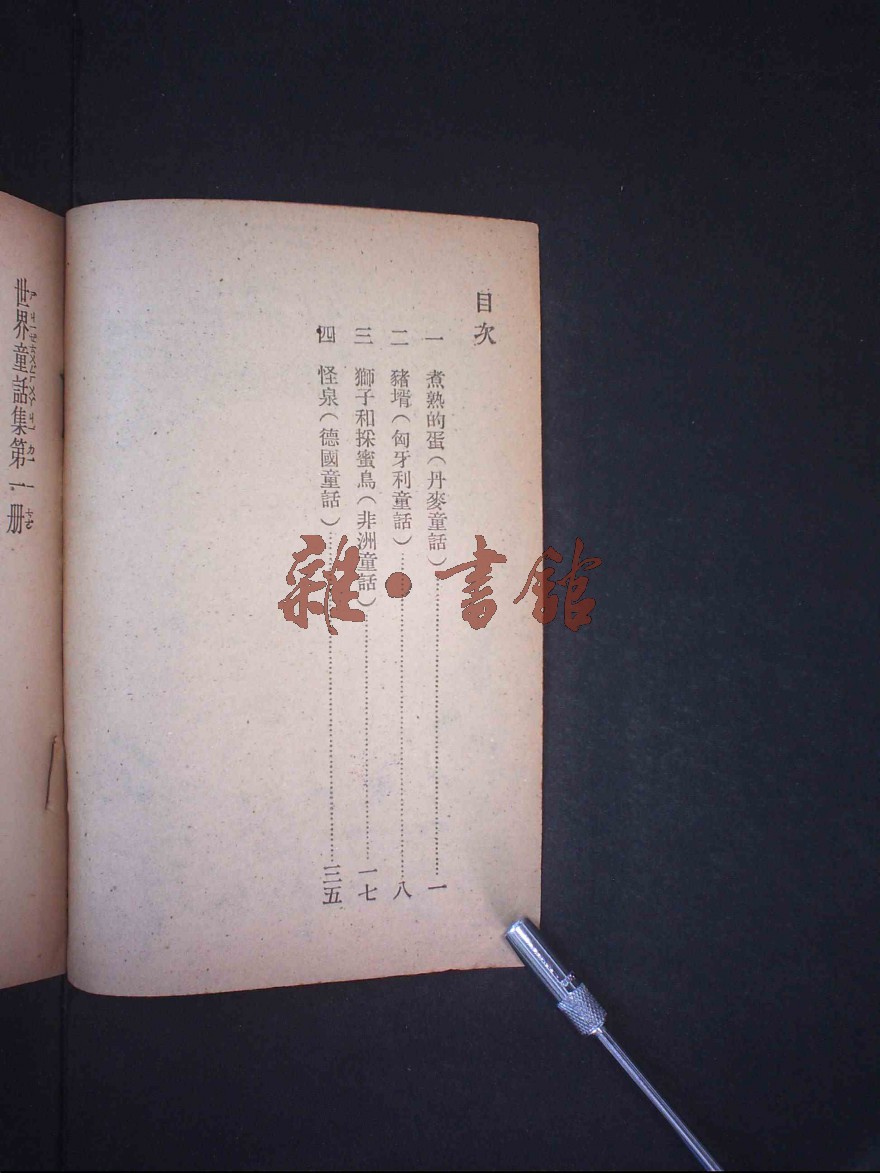 目次
一 煮熟的蛋(丹麥童話)……一
二 豬壻(匈牙利童話)……八
三 獅子和採蜜鳥(非洲童話)……一七
四 怪泉(德國童話)……三五
世界童話集第一册
雜·書館